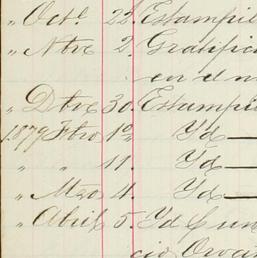 " Octe 22. Estampil
" Nbre 2. Gratific
en el m
" Dbre 30. Estampil
1879 Fbro 1o Yd —
" " 11. Yd —
" Mzo 4. Yd —
" Abril 5. Yd Cun
cio Orca